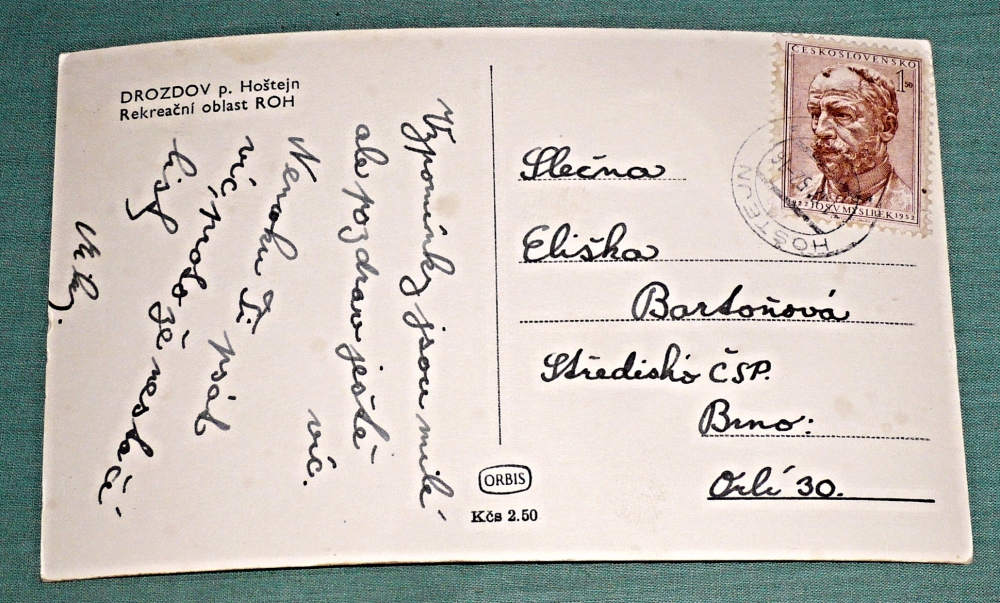 DROZDOV p. Hoštejn
Rekreační oblast ROH
Vzpomínky jsou milé
ale pozdrav ještě
víc.
Nemohu Ti
víc psát
protože nestačí
ČESKOSLOVENSKO
1 50
1922 JOS. V. MYSLBEK 1952
HOŠTEJN
Slečna
Eliška
Bartoňová
Středisko ČSP.
Brno:
Orlí 30.
ORBIS
Kčs 2.50